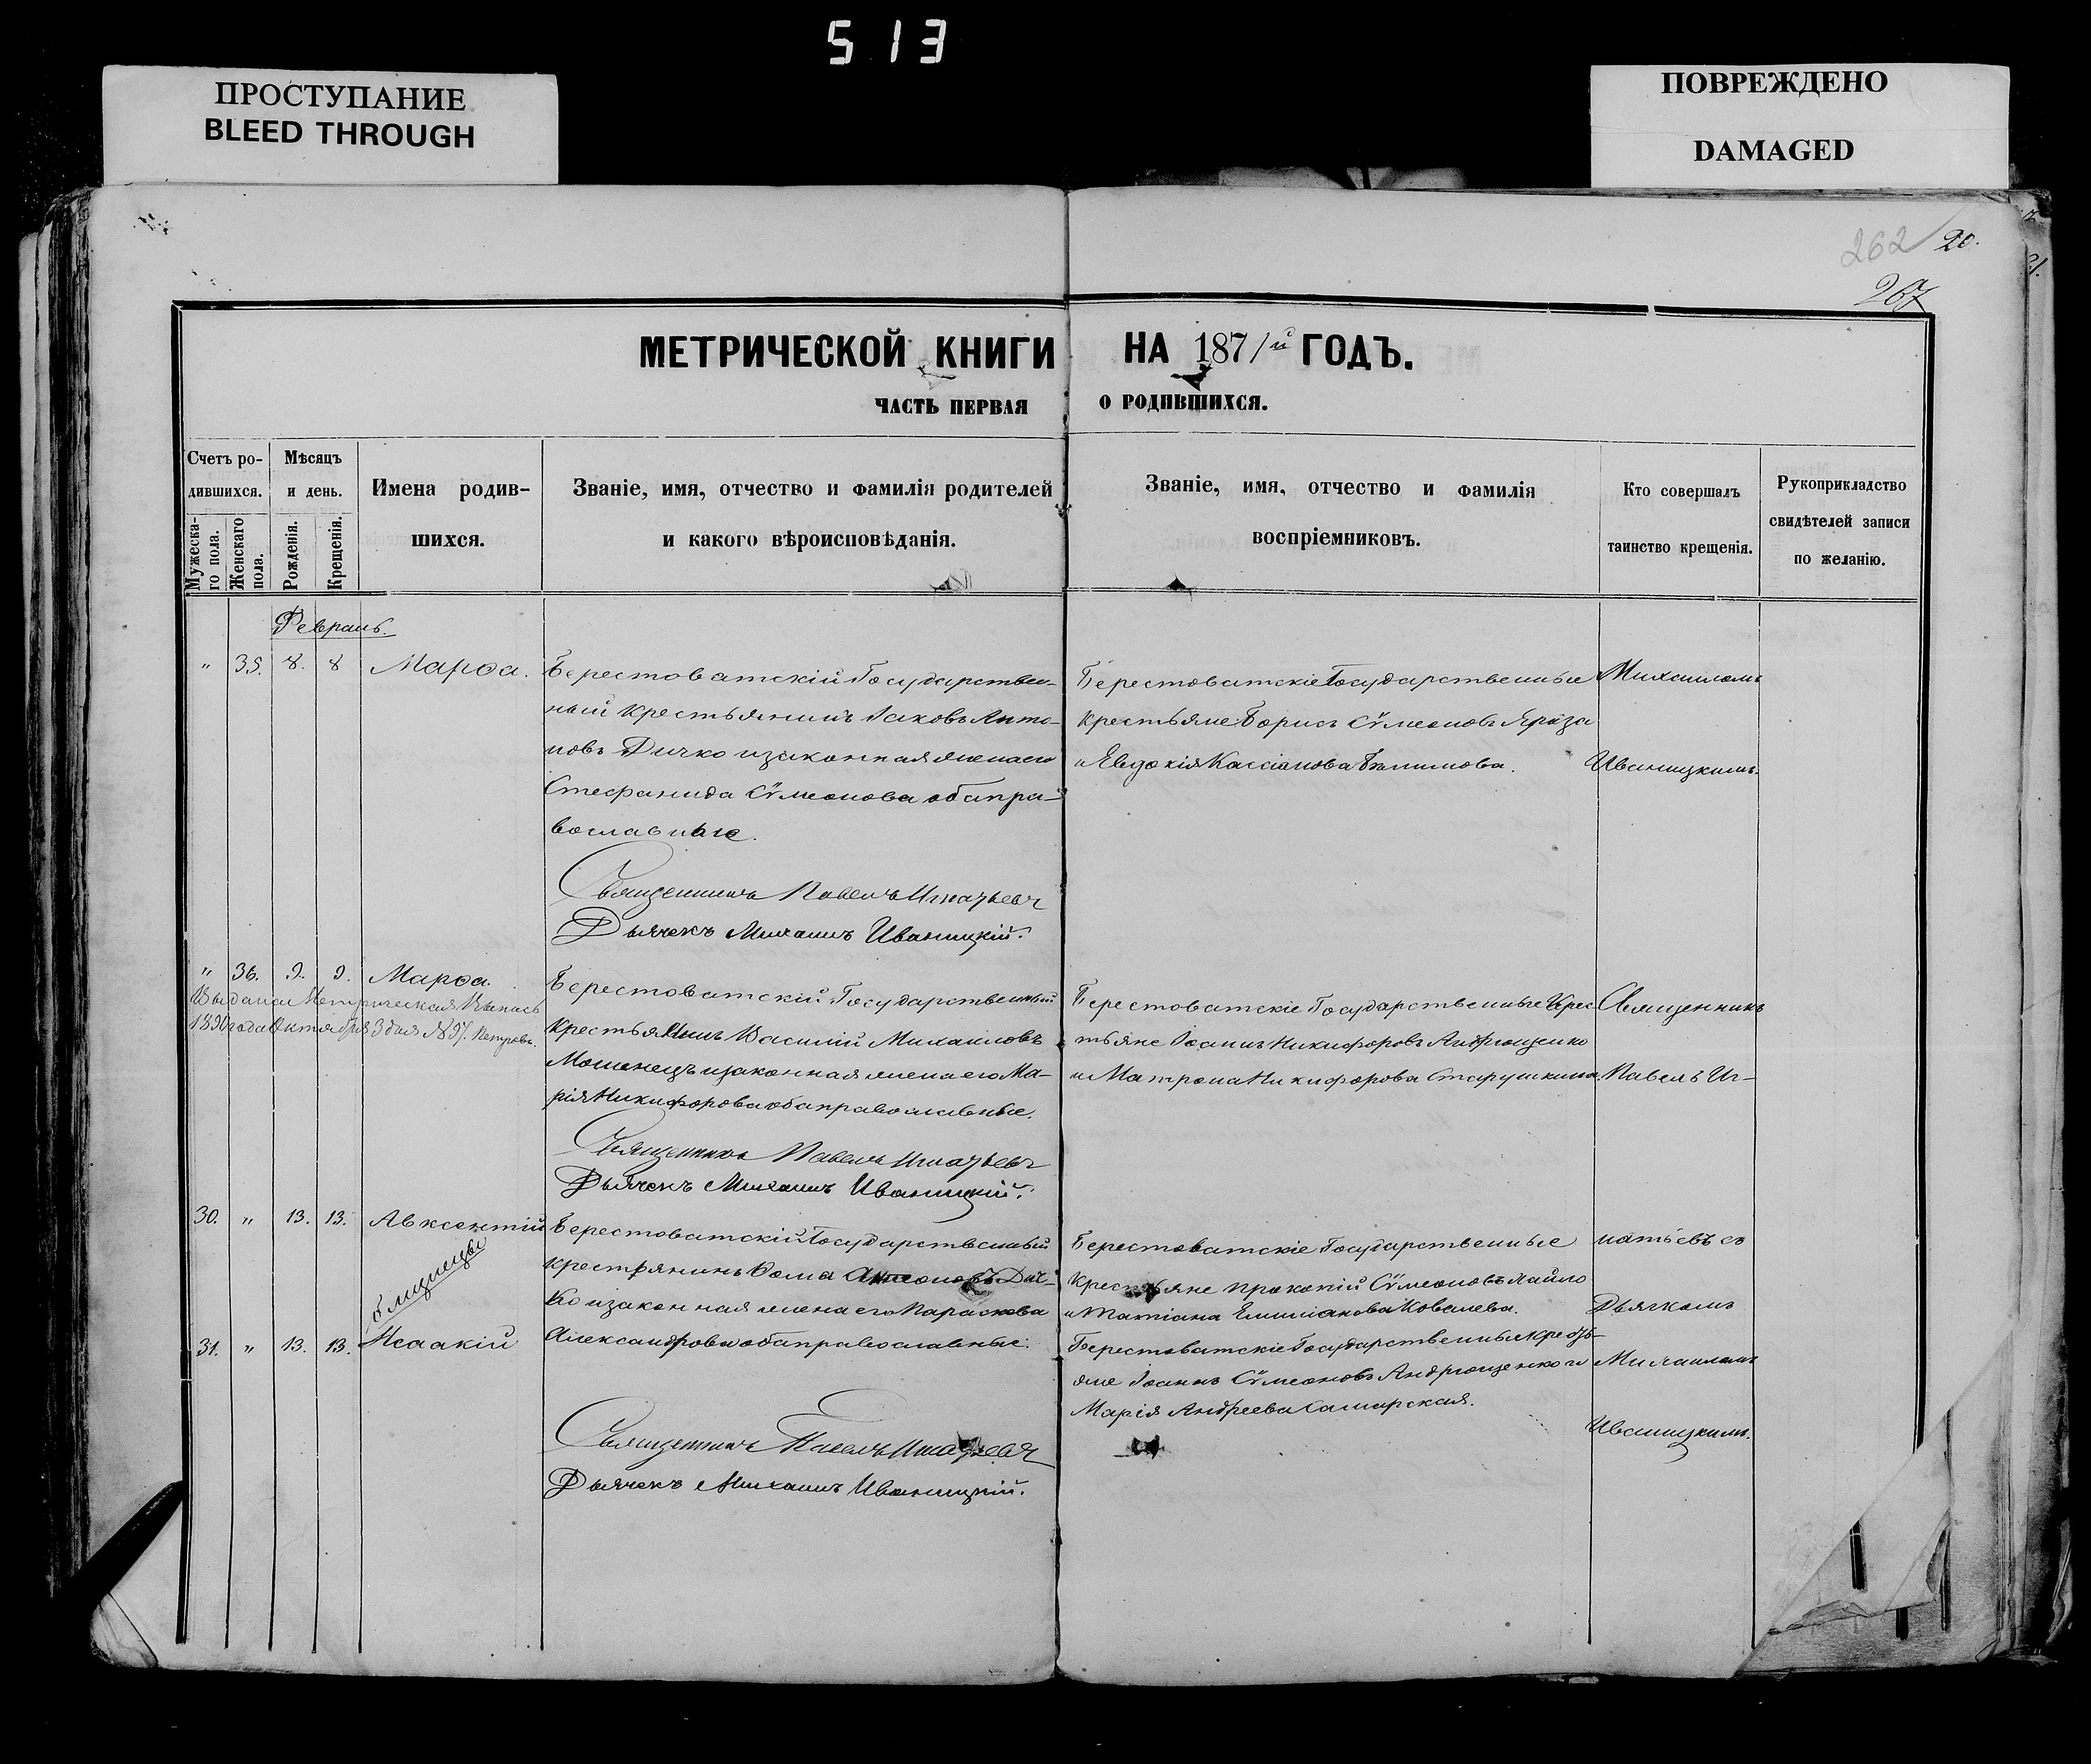 513
ПРОСТУПАНИЕ
BLEED THROUGH
ПОВРЕЖДЕНО
DAMAGED
262 20.
267
МЕТРИЧЕСКОЙ КНИГИ НА 1871й ГОДЪ.
ЧАСТЬ ПЕРВАЯ О РОДИВШИХСЯ.
Счетъ ро-
дившихся.
Мужеска-
го пола.
Женскаго
пола.
Мѣсяцъ
и день.
Рожденія.
Крещенія.
Имена родив-
шихся.
Званіе, имя, отчество и фамилія родителей
и какого вѣроисповѣданія.
Званіе, имя, отчество и фамилія
воспріемниковъ.
Кто совершалъ
таинство крещенія.
Рукоприкладство
свидѣтелей записи
по желанію.
Февраль.
" 35. 8. 8 Марѳа.
Берестоватскій Государствен-
ный крестьянинъ Іаковъ Анто-
новъ Дичко и законная жена его
Стефанида Сѵмеонова оба пра-
вославные.
Священникъ Павелъ Игнатьевъ
Дьячекъ Михаилъ Иваницкій.
Берестоватскіе Государственные
крестьяне Борисъ Сѵмеоновъ
и Евдокія Кассіанова
Михаиломъ
Иваницкимъ.
" 36. 9. 9. Марѳа.
Выдана Метрическая Выпись
1890 года Октября 3 дня № 97. Петровъ.
Берестоватскій Государственный
крестьянинъ Василій Михаиловъ
Мошенецъ и законная жена его Ма-
рія Никифорова оба православные.
Священникъ Павелъ Игнатьевъ
Дьячекъ Михаилъ Иваницкій.
Берестоватскіе Государственные Крес-
тьяне Іоаннъ Никифоровъ Андрющенко
и Матрона Никифорова Старушкина.
Священникъ
Павелъ Иг-
30. " 13. 13. Авксентій
Близнецы
31. " 13. 13. Исаакій
Берестоватскій Государственный
крестьянинъ Ѳома Дич-
ко и законная жена его Параскева
Александрова оба православные.
Священникъ Павелъ Игнатьевъ
Дьячекъ Михаилъ Иваницкій.
Берестоватскіе Государственные
Крестьяне Прокопій Сѵмеоновъ
и Татіана Емиліанова Ковалева.
Берестоватскіе Государственные крестъ-
яне Іоаннъ Сѵмеоновъ Андрющенко и
Марія Андреева Самарская.
натьевъ съ
Дьячкомъ
Михаиломъ
Иваницкимъ.